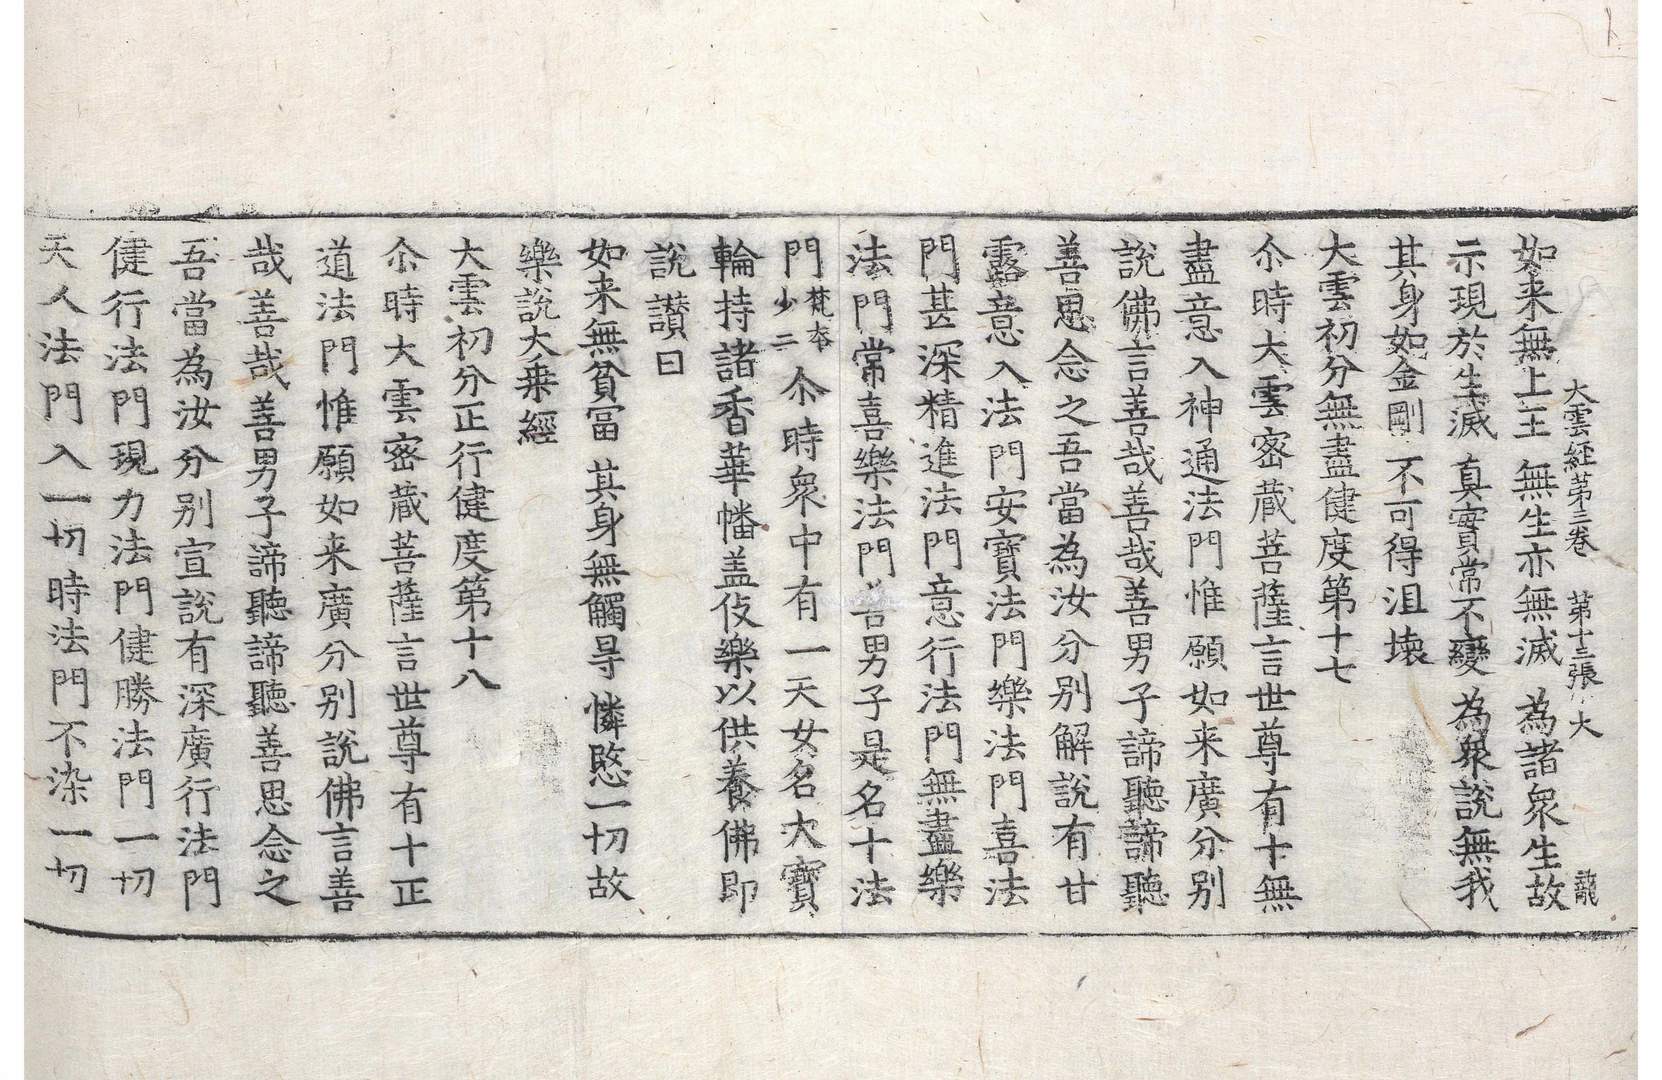 大雲經第三卷 第十三張 大 龍
如来無上王 無生亦無滅 為諸眾生故
示現於生滅 真實常不變 為眾說無我
其身如金剛 不可得沮壞
大雲初分無盡健度第十七
尒時大雲密蔵菩薩言世尊有十無
盡意入神通法門惟願如来廣分别
說佛言善哉善哉善男子諦聽諦聽
善思念之吾當為汝分别解說有甘
露意入法門安寶法門樂法門喜法
門甚深精進法門意行法門無盡樂
法門常喜樂法門善男子是名十法
門梵夲少二尒時眾中有一天女名大寶
輪持諸香華幡盖伎樂以供養佛即
說讃曰
如来無貧冨 其身無觸㝵 憐愍一切故
樂說大乗經
大雲初分正行健度第十八
尒時大雲密蔵菩薩言世尊有十正
道法門惟願如来廣分别說佛言善
哉善哉善男子諦聽諦聽善思念之
吾當為汝分别宣說有深廣行法門
健行法門現力法門健勝法門一切
天人法門入一切時法門不染一切